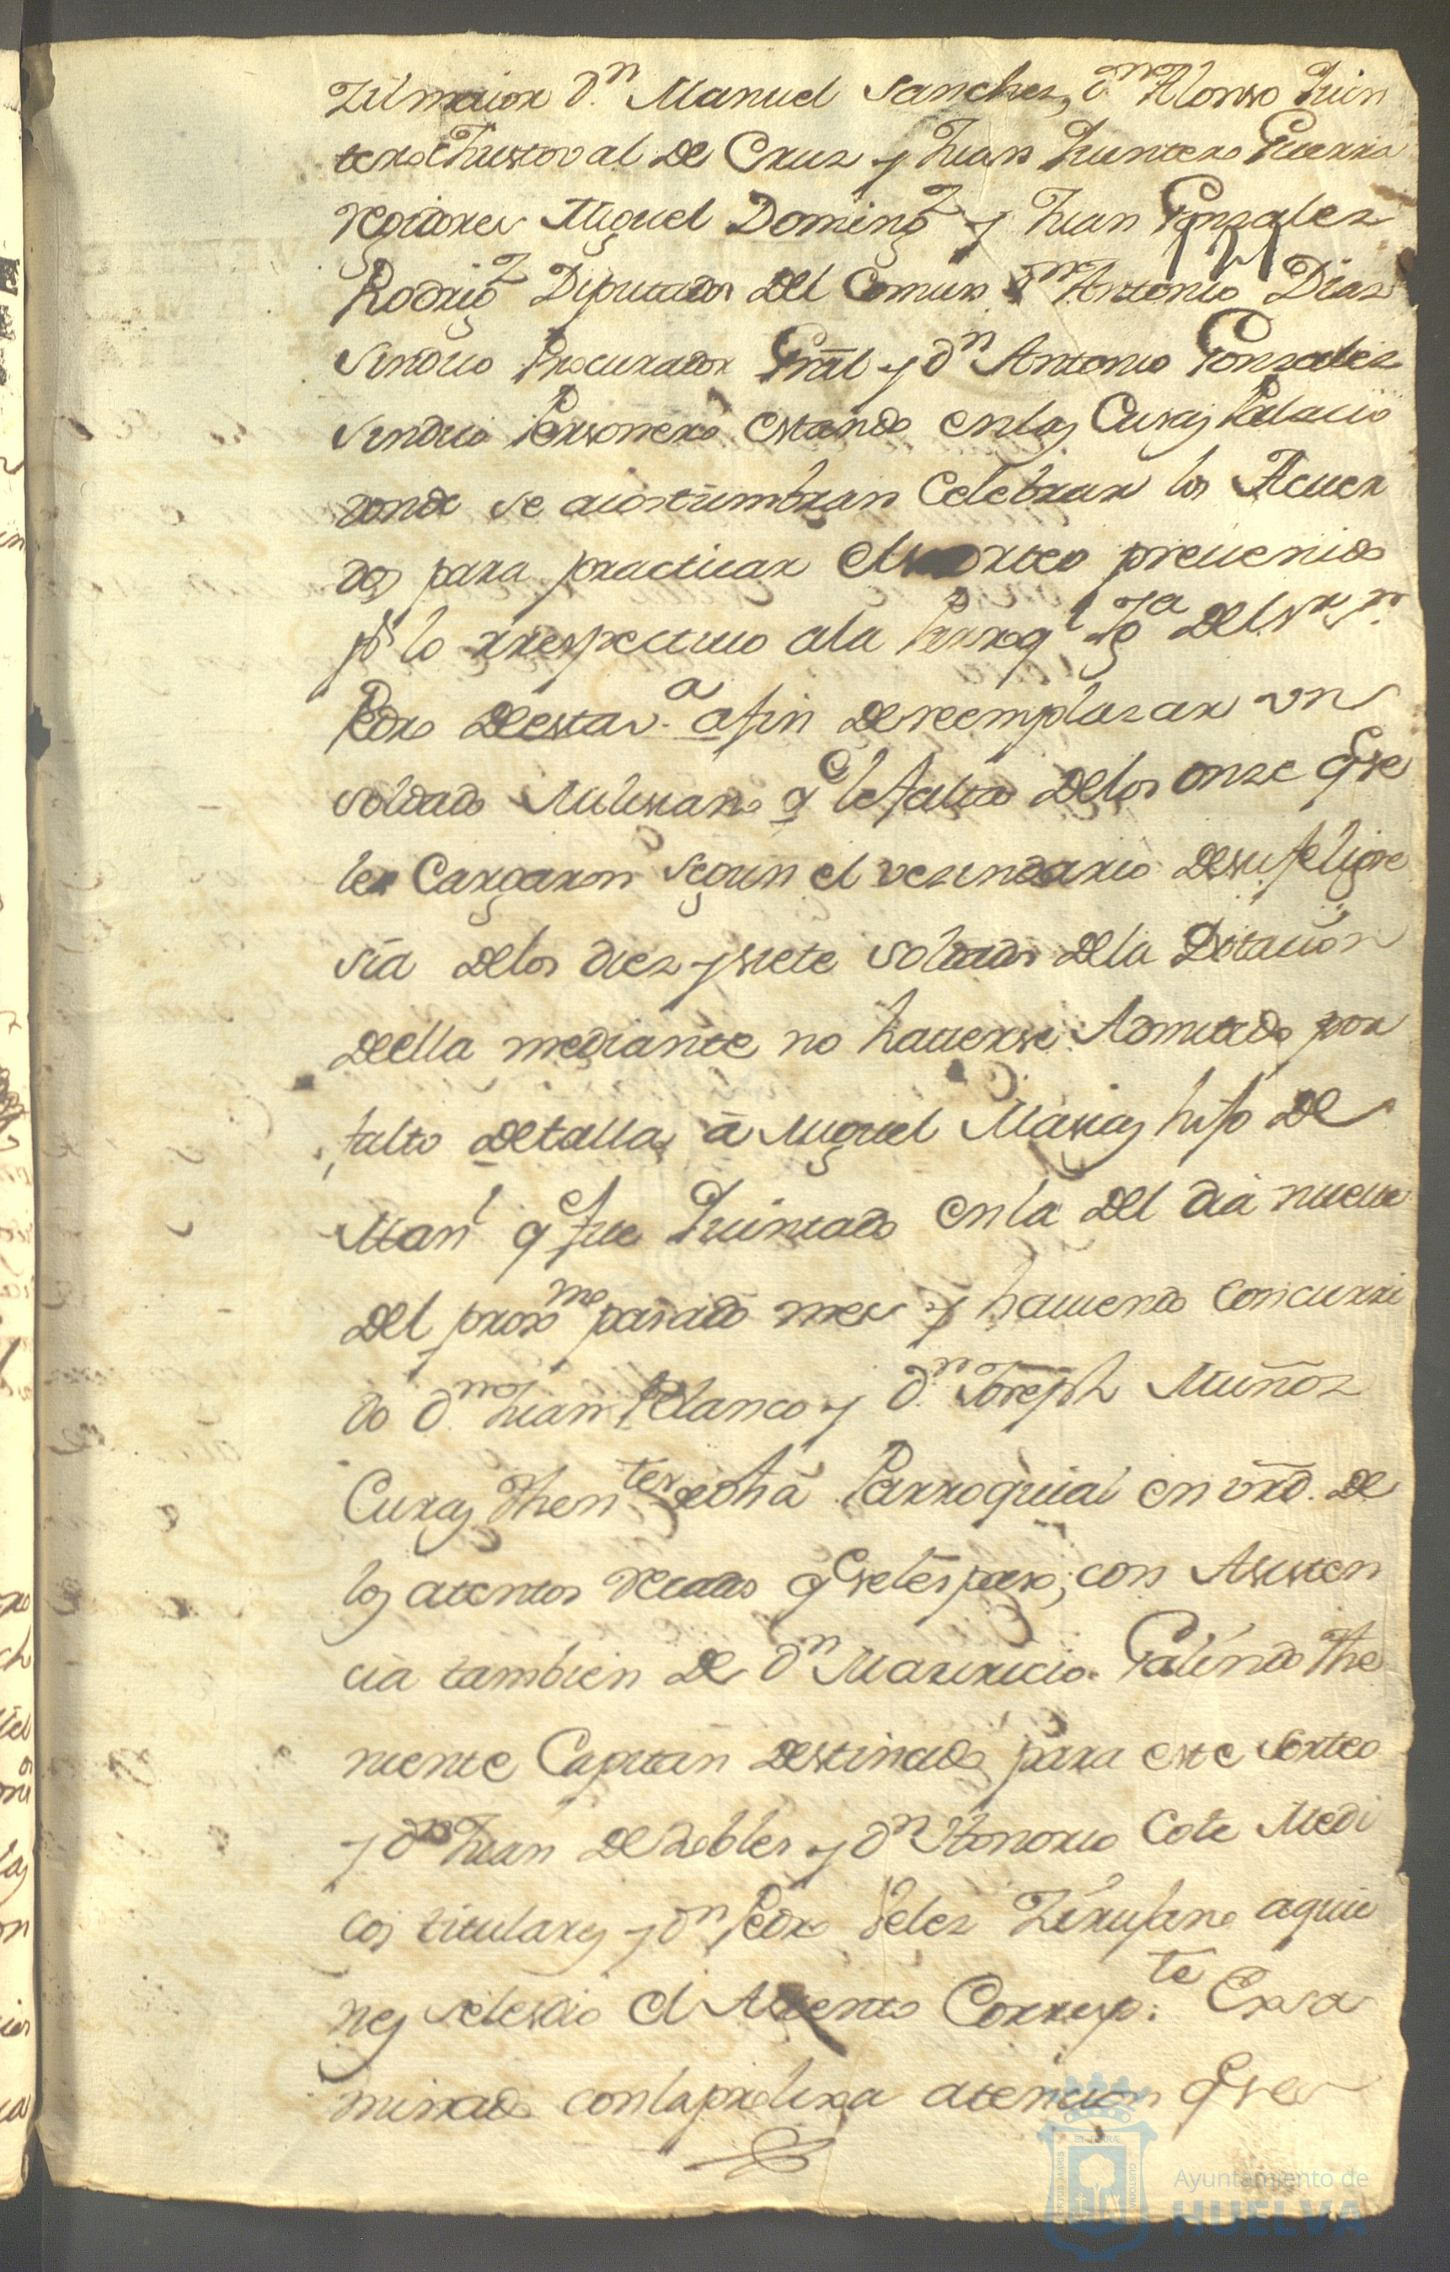 zil maior Dn. Manuel Sanchez, Dn Alonso Quin
tero Christoval de Cruz y Juan Quintero Guerra
regidores Miguel Domingz y Juan Gonzales
Rodrigz Diputados del Comun Dn Antonio Dias
Sindico Procurador Gral y Dn Antonio Gonzales
Sindico Personero estando en las Casas Palacio
donde se acostumbran Celebrar los Acuer
dos para practicar el sorteo preuenido
pr lo respectiuo a la Parroql Yga del Sr Sn.
Pedro de esta va. a fin de reemplazar vn
soldado Miliciano qe le falta de los onze qe se
les Cargaron segun el vezindario de su feligre
sia de los diez y siete soldados de la Dotacion
de ella mediante no hauerse Admitido por
falto de talla a Miguel Masias hijo de
Manl qe fue Quintado en la del dia nueue
del proxmo pasado mes y hauiendo concurri
do Dn. Juan Blanco y Dn. Joseph Muñoz
Curas Thentes de dha Parroquial en vrd. de
los atentos recados qe se les paso, con Asisten
cia tambien de Dn Mauricio Galindo The
niente Capitan destinado para este sorteo
y Dn Juan de Robles y Dn Honorio Cote Medi
cos titulares y Dn Pedro Velez Zirujano a quie
nes se les dio el Asiento Corresp.te Exsa
minado con la prolixa atencion qe se
Ayuntamiento de
HUELVA